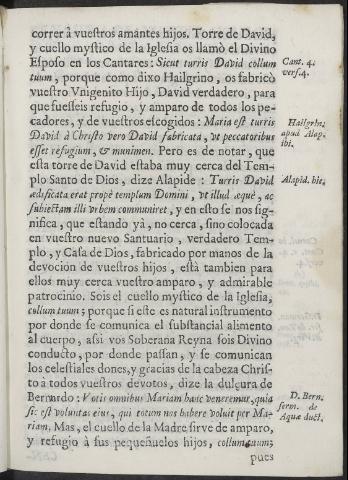 correr à vuestros amantes hijos. Torre de David,
y cuello mystico de la Iglesia os llamò el Divino
Esposo en los Cantares: Sicut turris David collum
tuum, porque como dixo Hailgrino, os fabricò
vuestro Vnigenito Hijo, David verdadero, para
que fuesseis refugio, y amparo de todos los pe-
cadores, y de vuestros escogidos: Maria est turris
David à Christo vero David fabricata, vt peccatoribus
esset refugium, & munimen. Pero es de notar, que
esta torre de David estaba muy cerca del Tem-
plo Santo de Dios, dize Alapide: Turris David
ædificata erat propè templum Domini, vt illud æquè, ac
subiectam illi vrbem communiret, y en esto se nos sig-
nifica, que estando yà, no cerca, sino colocada
en vuestro nuevo Santuario, verdadero Tem-
plo, y Casa de Dios, fabricado por manos de la
devocion de vuestros hijos, està tambien para
ellos muy cerca vuestro amparo, y admirable
patrocinio. Sois el cuello mystico de la Iglesia,
collum tuum; porque si este es natural instrumento
por donde se comunica el substancial alimento
al cuerpo, assi vos Soberana Reyna sois Divino
conducto, por donde passan, y se comunican
los celestiales dones, y gracias de la cabeza Chris-
to à todos vuestros devotos, dize la dulçura de
Bernardo: Votis omnibus Mariam hanc veneremur, quia
sic est voluntas eius, qui totum nos habere voluit per Ma-
riam. Mas, el cuello de la Madre sirve de amparo,
y refugio à sus pequeñuelos hijos, collum tuum;
pues
Cant. 4.
vers. 4.
Hailgrin.
apud Alap.
ibi.
Alapid. hic.
D. Bern.
serm. de
Aquæ duct.